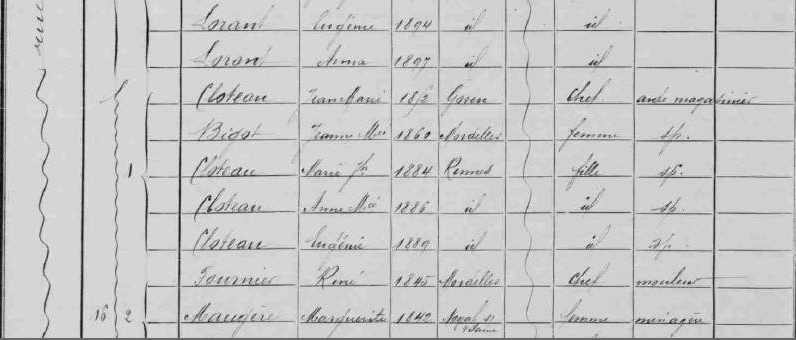 Lorant Eugénie 1894 id id
Lorant Anna 1897 id id
Cloteau Jean Marie Goven chef magasinier
Bigot Jeanne Mie 1860 Mordelles femme sp.
1 Cloteau Marie 1884 Rennes fille sp.
Cloteau Anne Mie 1886 id id sp.
Cloteau Eugénie 1889 id id sp.
Fournier René 1845 Mordelles chef mouleur
16 2 Maugère Marguerite 1842 Noyal s/ Vilaine femme ménagère
rue